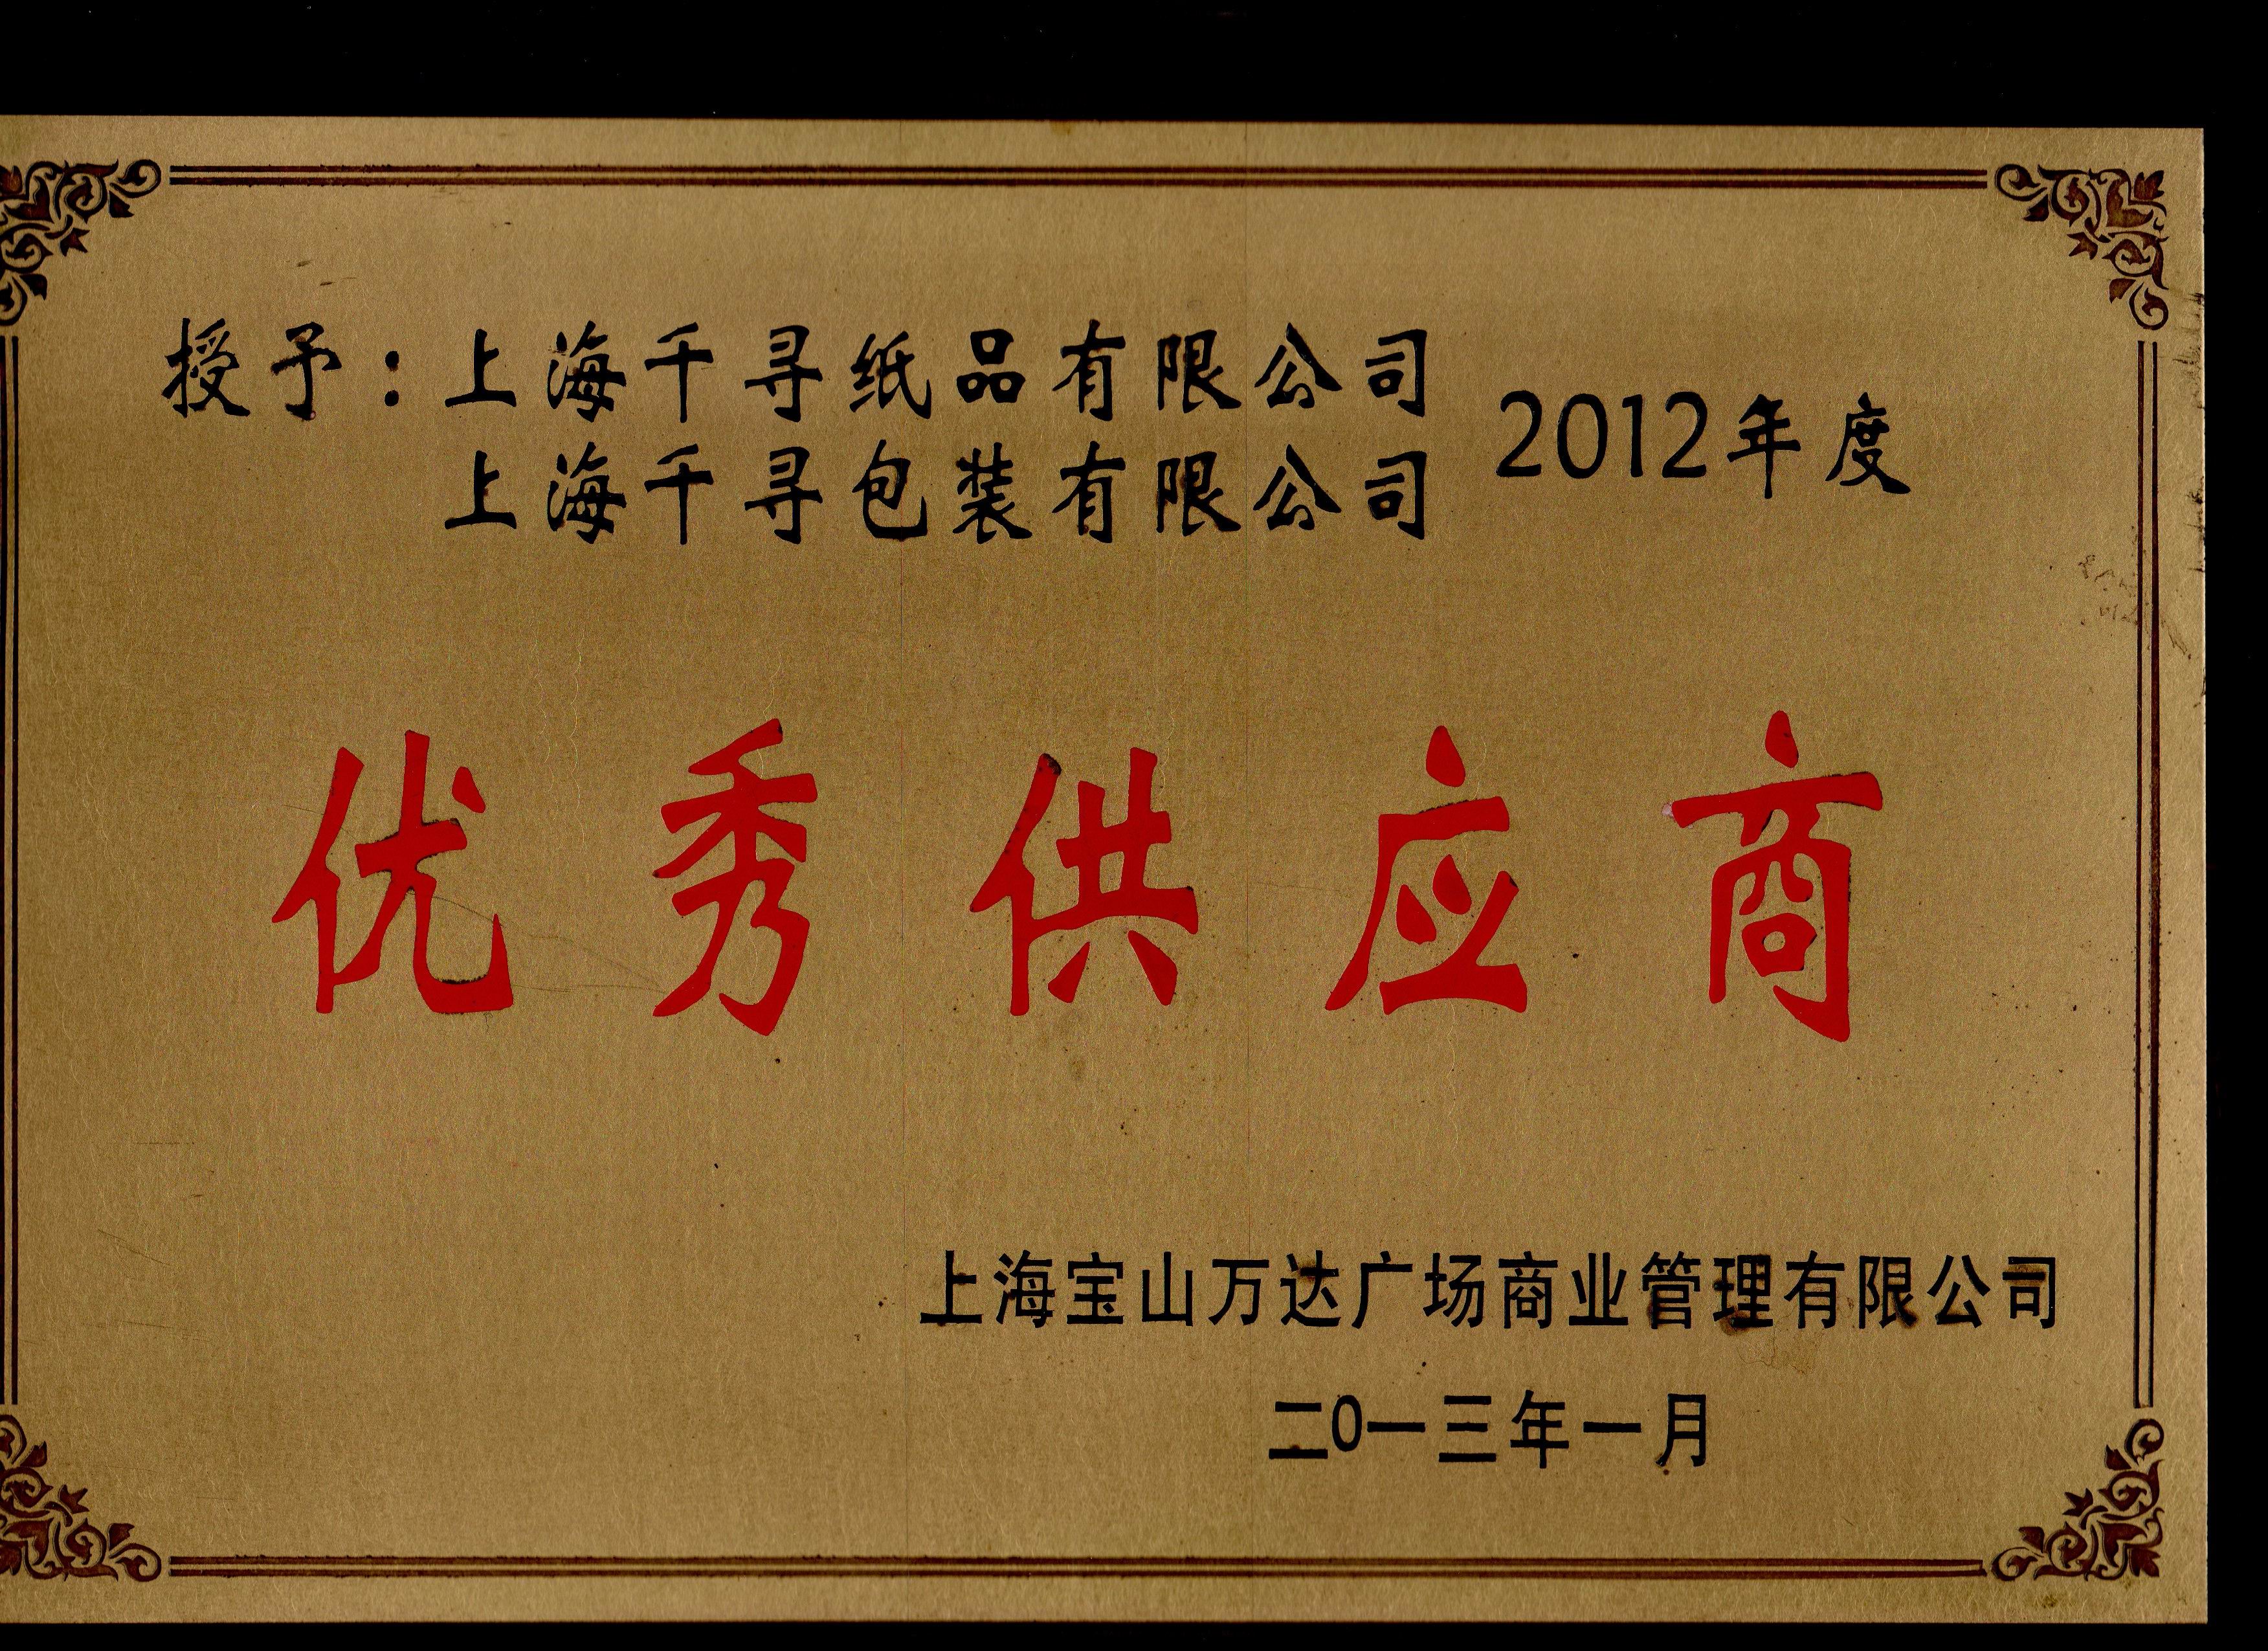 授予：上海千寻纸品有限公司
上海千寻包装有限公司
2012年度
优秀供应商
上海宝山万达广场商业管理有限公司
二0一三年一月